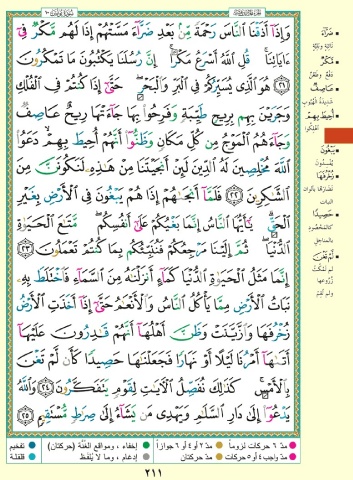 وَإِذَآ أَذَقْنَا ٱلنَّاسَ رَحْمَةً مِّنۢ بَعْدِ ضَرَّآءَ مَسَّتْهُمْ إِذَا لَهُم مَّكْرٌ فِىٓ
ءَايَاتِنَا ۚ قُلِ ٱللَّهُ أَسْرَعُ مَكْرًا ۚ إِنَّ رُسُلَنَا يَكْتُبُونَ مَا تَمْكُرُونَ
٢١ هُوَ ٱلَّذِى يُسَيِّرُكُمْ فِى ٱلْبَرِّ وَٱلْبَحْرِ ۖ حَتَّىٰٓ إِذَا كُنتُمْ فِى ٱلْفُلْكِ
وَجَرَيْنَ بِهِم بِرِيحٍ طَيِّبَةٍ وَفَرِحُوا۟ بِهَا جَآءَتْهَا رِيحٌ عَاصِفٌ
وَجَآءَهُمُ ٱلْمَوْجُ مِن كُلِّ مَكَانٍ وَظَنُّوٓا۟ أَنَّهُمْ أُحِيطَ بِهِمْ ۙ دَعَوُا۟
ٱللَّهَ مُخْلِصِينَ لَهُ ٱلدِّينَ لَئِنْ أَنجَيْتَنَا مِنْ هَٰذِهِۦ لَنَكُونَنَّ مِنَ
ٱلشَّٰكِرِينَ ٢٢ فَلَمَّآ أَنجَىٰهُمْ إِذَا هُمْ يَبْغُونَ فِى ٱلْأَرْضِ بِغَيْرِ
ٱلْحَقِّ ۗ يَٰٓأَيُّهَا ٱلنَّاسُ إِنَّمَا بَغْيُكُمْ عَلَىٰٓ أَنفُسِكُم ۖ مَّتَٰعَ ٱلْحَيَوٰةِ
ٱلدُّنْيَا ۖ ثُمَّ إِلَيْنَا مَرْجِعُكُمْ فَنُنَبِّئُكُم بِمَا كُنتُمْ تَعْمَلُونَ ٢٣
إِنَّمَا مَثَلُ ٱلْحَيَوٰةِ ٱلدُّنْيَا كَمَآءٍ أَنزَلْنَٰهُ مِنَ ٱلسَّمَآءِ فَٱخْتَلَطَ بِهِۦ
نَبَاتُ ٱلْأَرْضِ مِمَّا يَأْكُلُ ٱلنَّاسُ وَٱلْأَنْعَٰمُ حَتَّىٰٓ إِذَآ أَخَذَتِ ٱلْأَرْضُ
زُخْرُفَهَا وَٱزَّيَّنَتْ وَظَنَّ أَهْلُهَآ أَنَّهُمْ قَٰدِرُونَ عَلَيْهَآ
أَتَىٰهَآ أَمْرُنَا لَيْلًا أَوْ نَهَارًا فَجَعَلْنَٰهَا حَصِيدًا كَأَن لَّمْ تَغْنَ
بِٱلْأَمْسِ ۚ كَذَٰلِكَ نُفَصِّلُ ٱلْءَايَٰتِ لِقَوْمٍ يَتَفَكَّرُونَ ٢٤ وَٱللَّهُ
يَدْعُوٓا۟ إِلَىٰ دَارِ ٱلسَّلَٰمِ وَيَهْدِى مَن يَشَآءُ إِلَىٰ صِرَٰطٍ مُّسْتَقِيمٍ ٢٥
ضَرَّآءَ
نائبة وبلية
مَكْرٌ
دفع وطعن
عَاصِفٌ
شديدة الهبوب
أُحِيطَ بِهِمْ
أهلكوا
يَبْغُونَ
يفسدون
زُخْرُفَهَا
نضارتها بألوان
النبات
حَصِيدًا
كالمحصود
بالمناجل
لَّمْ تَغْنَ
لم تمكث
زروعها
ولم تقم
مدّ ٦ حركات لزوماً
مدّ ٢ أو ٤ أو ٦ جوازاً
إخفاء، ومواقع الغُنَّة (حركتان)
تفخيم
مدّ واجب ٤ أو ٥ حركات
مدّ حركتان
إدغام، وما لا يُلفَظ
قلقلة
٢١١